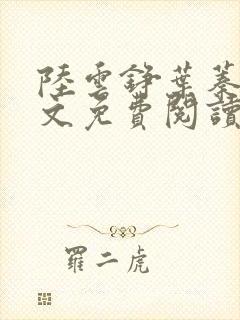 陸雲錚葉蓁
文免費閱讀
羅二虎